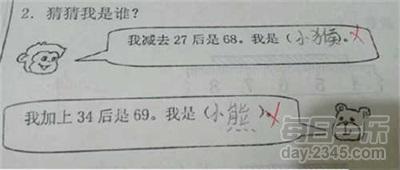 2. 猜猜我是谁?
我减去 27 后是 68。我是(小猴)。
我加上 34 后是 69。我是(小熊)。
每日一乐
day.2345.com